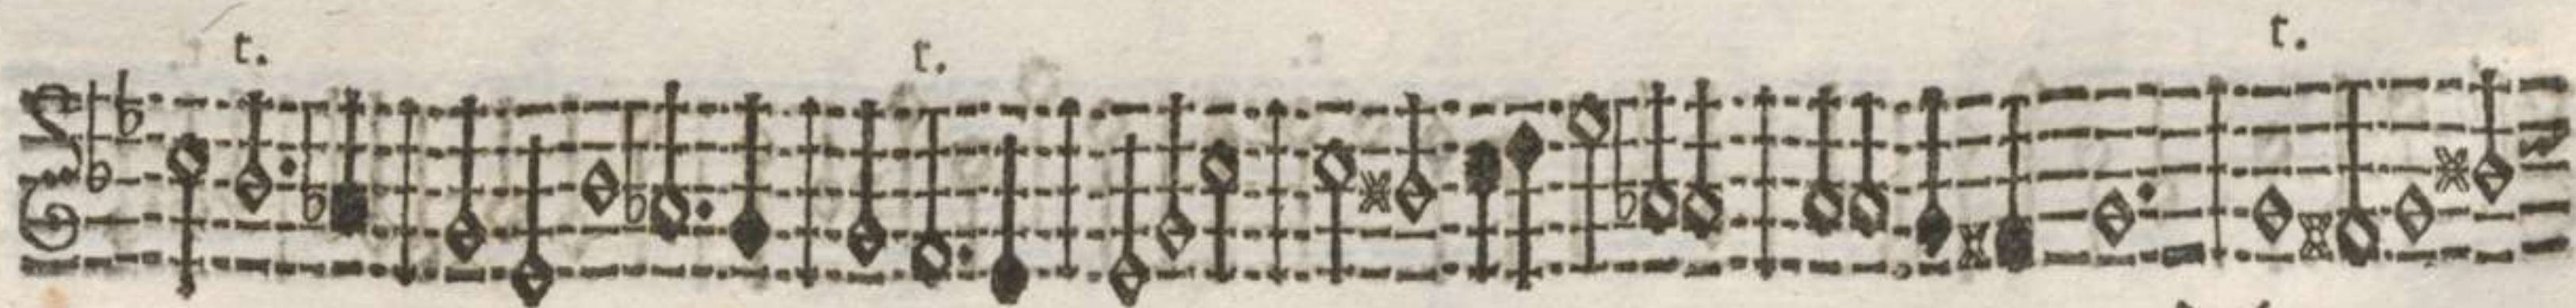 t. t. t.